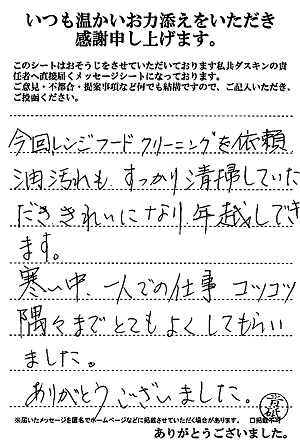 いつも温かいお力添えをいただき
感謝申し上げます。
このシートはおそうじをさせていただいております私共ダスキンの責
任者へ直接届くメッセージシートになっております。
ご意見・不都合・提案事項など何でも結構ですので、ご記入いただき、
ご投函ください。
今回レンジフードクリーニングを依頼
油汚れも、すっかり清掃していた
だききれいになり、年越しでき
ます。
寒い中、一人での仕事 コツコツ
隅々までとてもよくしてもらい
ました。
ありがとうございました。
※届いたメッセージを匿名でホームページなどに掲載させていただく場合があります。 口掲載不可
ありがとうございました。